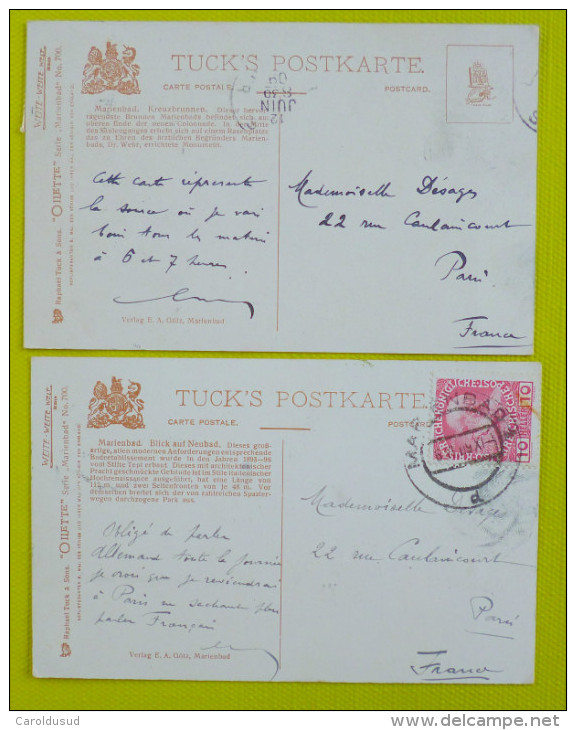 TUCK'S POSTKARTE.
CARTE POSTALE.
POSTCARD.
12
JUIN
Marienbad, Kreuzbrunnen. Dieser hervor-
ragendste Brunnen Marienbads befindet sich am
oberen Ende der neuen Colonnade. In der Mitte
des Säulenganges erhebt sich auf einem Rasenplatze
das zu Ehren des ärztlichen Begründers Marien-
bads, Dr. Wehr, errichtete Monument.
Cette carte représente
la source où je vais
boire tous les matins
à 6 et 7 heures.
Mademoiselle Désages
22 rue Caulaincourt
Paris
France
Verlag E. A. Götz, Marienbad
WEITE WEITE WELT
Raphael Tuck & Sons. "OILETTE" Serie „Marienbad" No. 700.
TUCK'S POSTKARTE.
CARTE POSTALE.
POSTCARD
MARIENBAD
10
10
Marienbad. Blick auf Neubad. Dieses groß-
artige, allen modernen Anforderungen entsprechende
Badeetablissement wurde in den Jahren 1893–96
vom Stifte Tepl erbaut. Dieses mit architektonischer
Pracht geschmückte Gebäude ist im Stile italienischer
Hochrenaissance ausgeführt, hat eine Länge von
112 m, und zwei Seitenfronten von je 48 m. Vor
demselben breitet sich der von zahlreichen Spazier-
wegen durchzogene Park aus.
Obligé de parler
Allemand toute la journée
je crois que je reviendrai
à Paris ne sachant plus
parler Français
Mademoiselle Désages
22 rue Caulaincourt
Paris
France
Verlag E. A. Götz, Marienbad
WEITE WEITE WELT
Raphael Tuck & Sons. "OILETTE" Serie „Marienbad" No. 700.
Caroldusud
delcampe.net